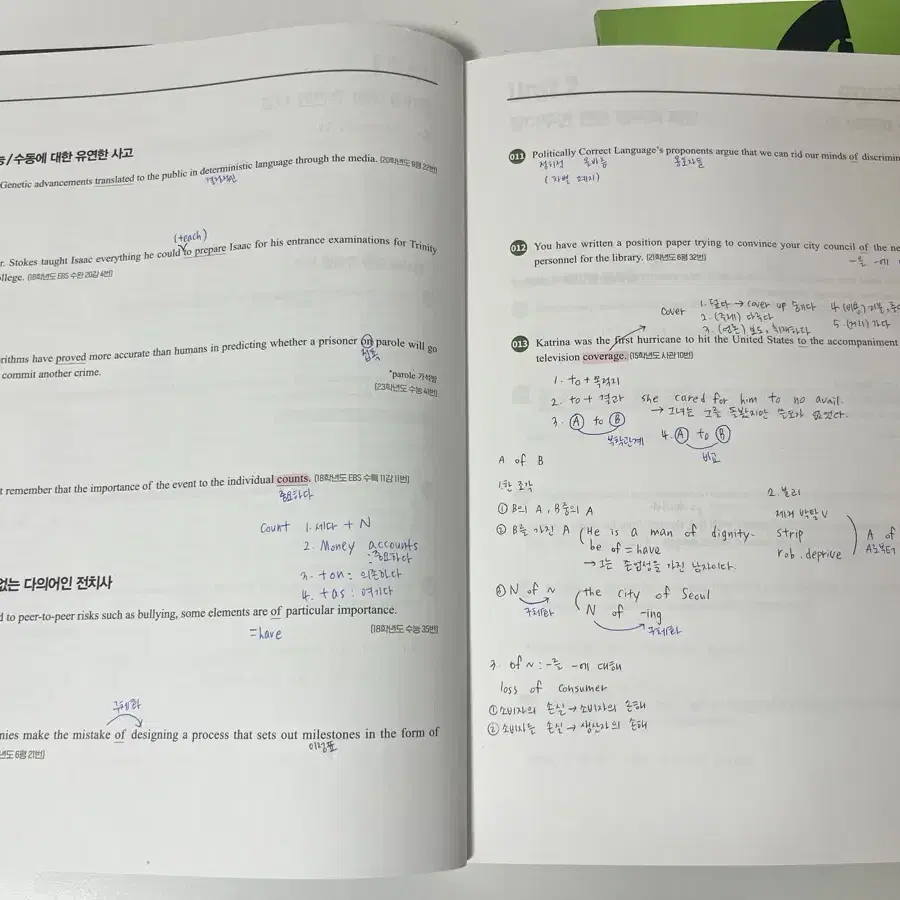 능/수동에 대한 유연한 사고
Genetic advancements translated to the public in deterministic language through the media. [20학년도 9월 22번]
결정적인
(teach)
r. Stokes taught Isaac everything he could to prepare Isaac for his entrance examinations for Trinity
llege. [18학년도 EBS 수완 20강 4번]
rithms have proved more accurate than humans in predicting whether a prisoner on parole will go
commit another crime.
접촉
*parole 가석방
[23학년도 수능 41번]
t remember that the importance of the event to the individual counts. [18학년도 EBS 수특 11강 11번]
중요하다
count 1. 세다 + N
2. Money accounts
: 중요하다
3. + on : 의존하다
4. + as : 여기다
없는 다의어인 전치사
d to peer-to-peer risks such as bullying, some elements are of particular importance.
=have
[18학년도 수능 35번]
구체화
nies make the mistake of designing a process that sets out milestones in the form of
이정표
년도 6월 21번]
011 Politically Correct Language's proponents argue that we can rid our minds of discrimin
정치적 올바름 옹호자들
(차별 폐지)
012 You have written a position paper trying to convince your city council of the ne
personnel for the library. [21학년도 6월 32번]
-을 -에
cover 1. 덮다 → cover up 숨기다 4. (비용) 지불,
2. (주제) 다룬다 5. (거리) 가다
3. (언론) 보도, 취재하다
013 Katrina was the first hurricane to hit the United States to the accompaniment
television coverage. [15학년도 사관 10번]
1. to + 목적지
2. to + 결과 she cared for him to no avail.
→ 그녀는 그를 돌봤지만 쓸모가 없었다.
3. Ⓐ to Ⓑ 4. Ⓐ to Ⓑ
부착관계 비교
A of B
1. 한 조각
① B의 A, B중의 A
② B를 가진 A (He is a man of dignity.
be of = have
→ 그는 존엄성을 가진 남자이다.
③ N of ~ (the city of Seoul
구체화
N of -ing
구체화
2. 분리
제거 박탈 V
strip
rob. deprive
A of
A로부터
3. of ~ : -을 -에 대해
loss of consumer
① 소비자의 손실 → 소비자의 손해
② 소비자는 손실 → 생산자의 손해